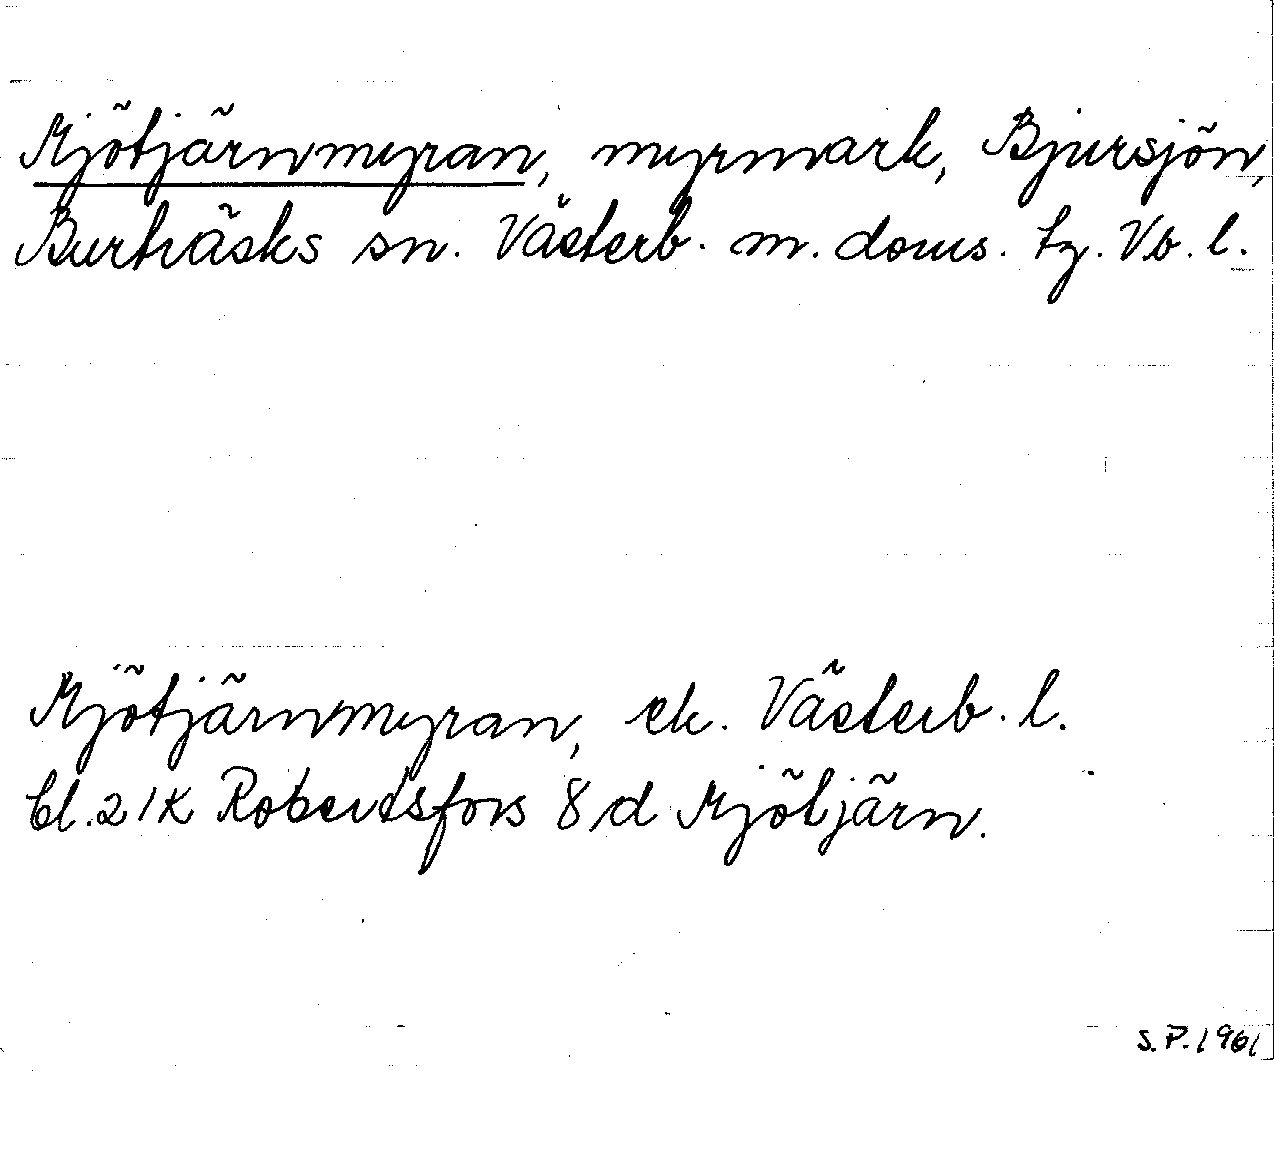 Mjötjärnmyran, myrmark, Bjursjön,
Burträsks sn. Västerb. m. doms. tg. Vb. l.
Mjötjärnmyran, ek. Västerb. l.
bl. 21K Robertsfors 8d Mjötjärn.
S.P. 1961